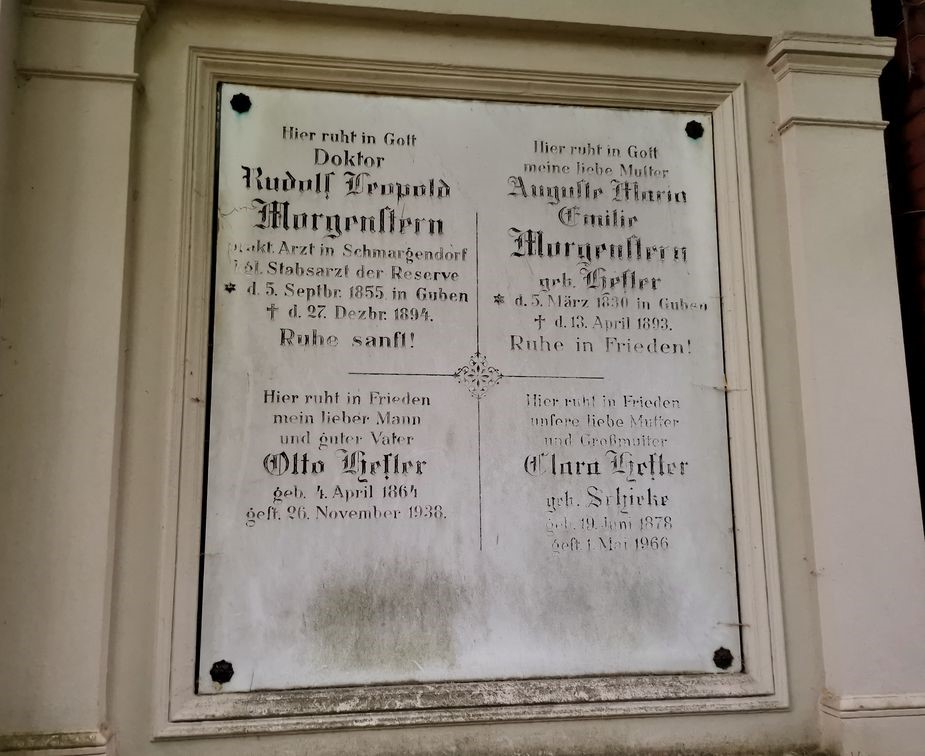 Hier ruht in Gott
Doktor
Rudolf Leopold
Morgenstern
prakt. Arzt in Schmargendorf
Kgl. Stabsarzt der Reserve
* d. 5. Septbr. 1855 in Guben
† d. 27. Dezbr. 1894.
Ruhe sanft!
Hier ruht in Gott
meine liebe Mutter
Auguste Maria
Emilie
Morgenstern
geb. Hefter
* d. 5. März 1830 in Guben
† d. 13. April 1893.
Ruhe in Frieden!
Hier ruht in Frieden
mein lieber Mann
und guter Vater
Otto Hefter
geb. 4. April 1864
gest. 26. November 1938.
Hier ruht in Frieden
unsere liebe Mutter
und Großmutter
Clara Hefter
geb. Schicke
geb. 19. Juni 1878
gest. 1. Mai 1966